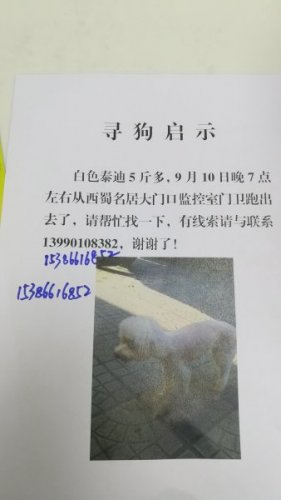 寻狗启示
白色泰迪5斤多，9月10日晚7点
左右从西蜀名居大门口监控室门卫跑出
去了，请帮忙找一下，有线索请与联系
13990108382，谢谢了！
15386616852
15386616852